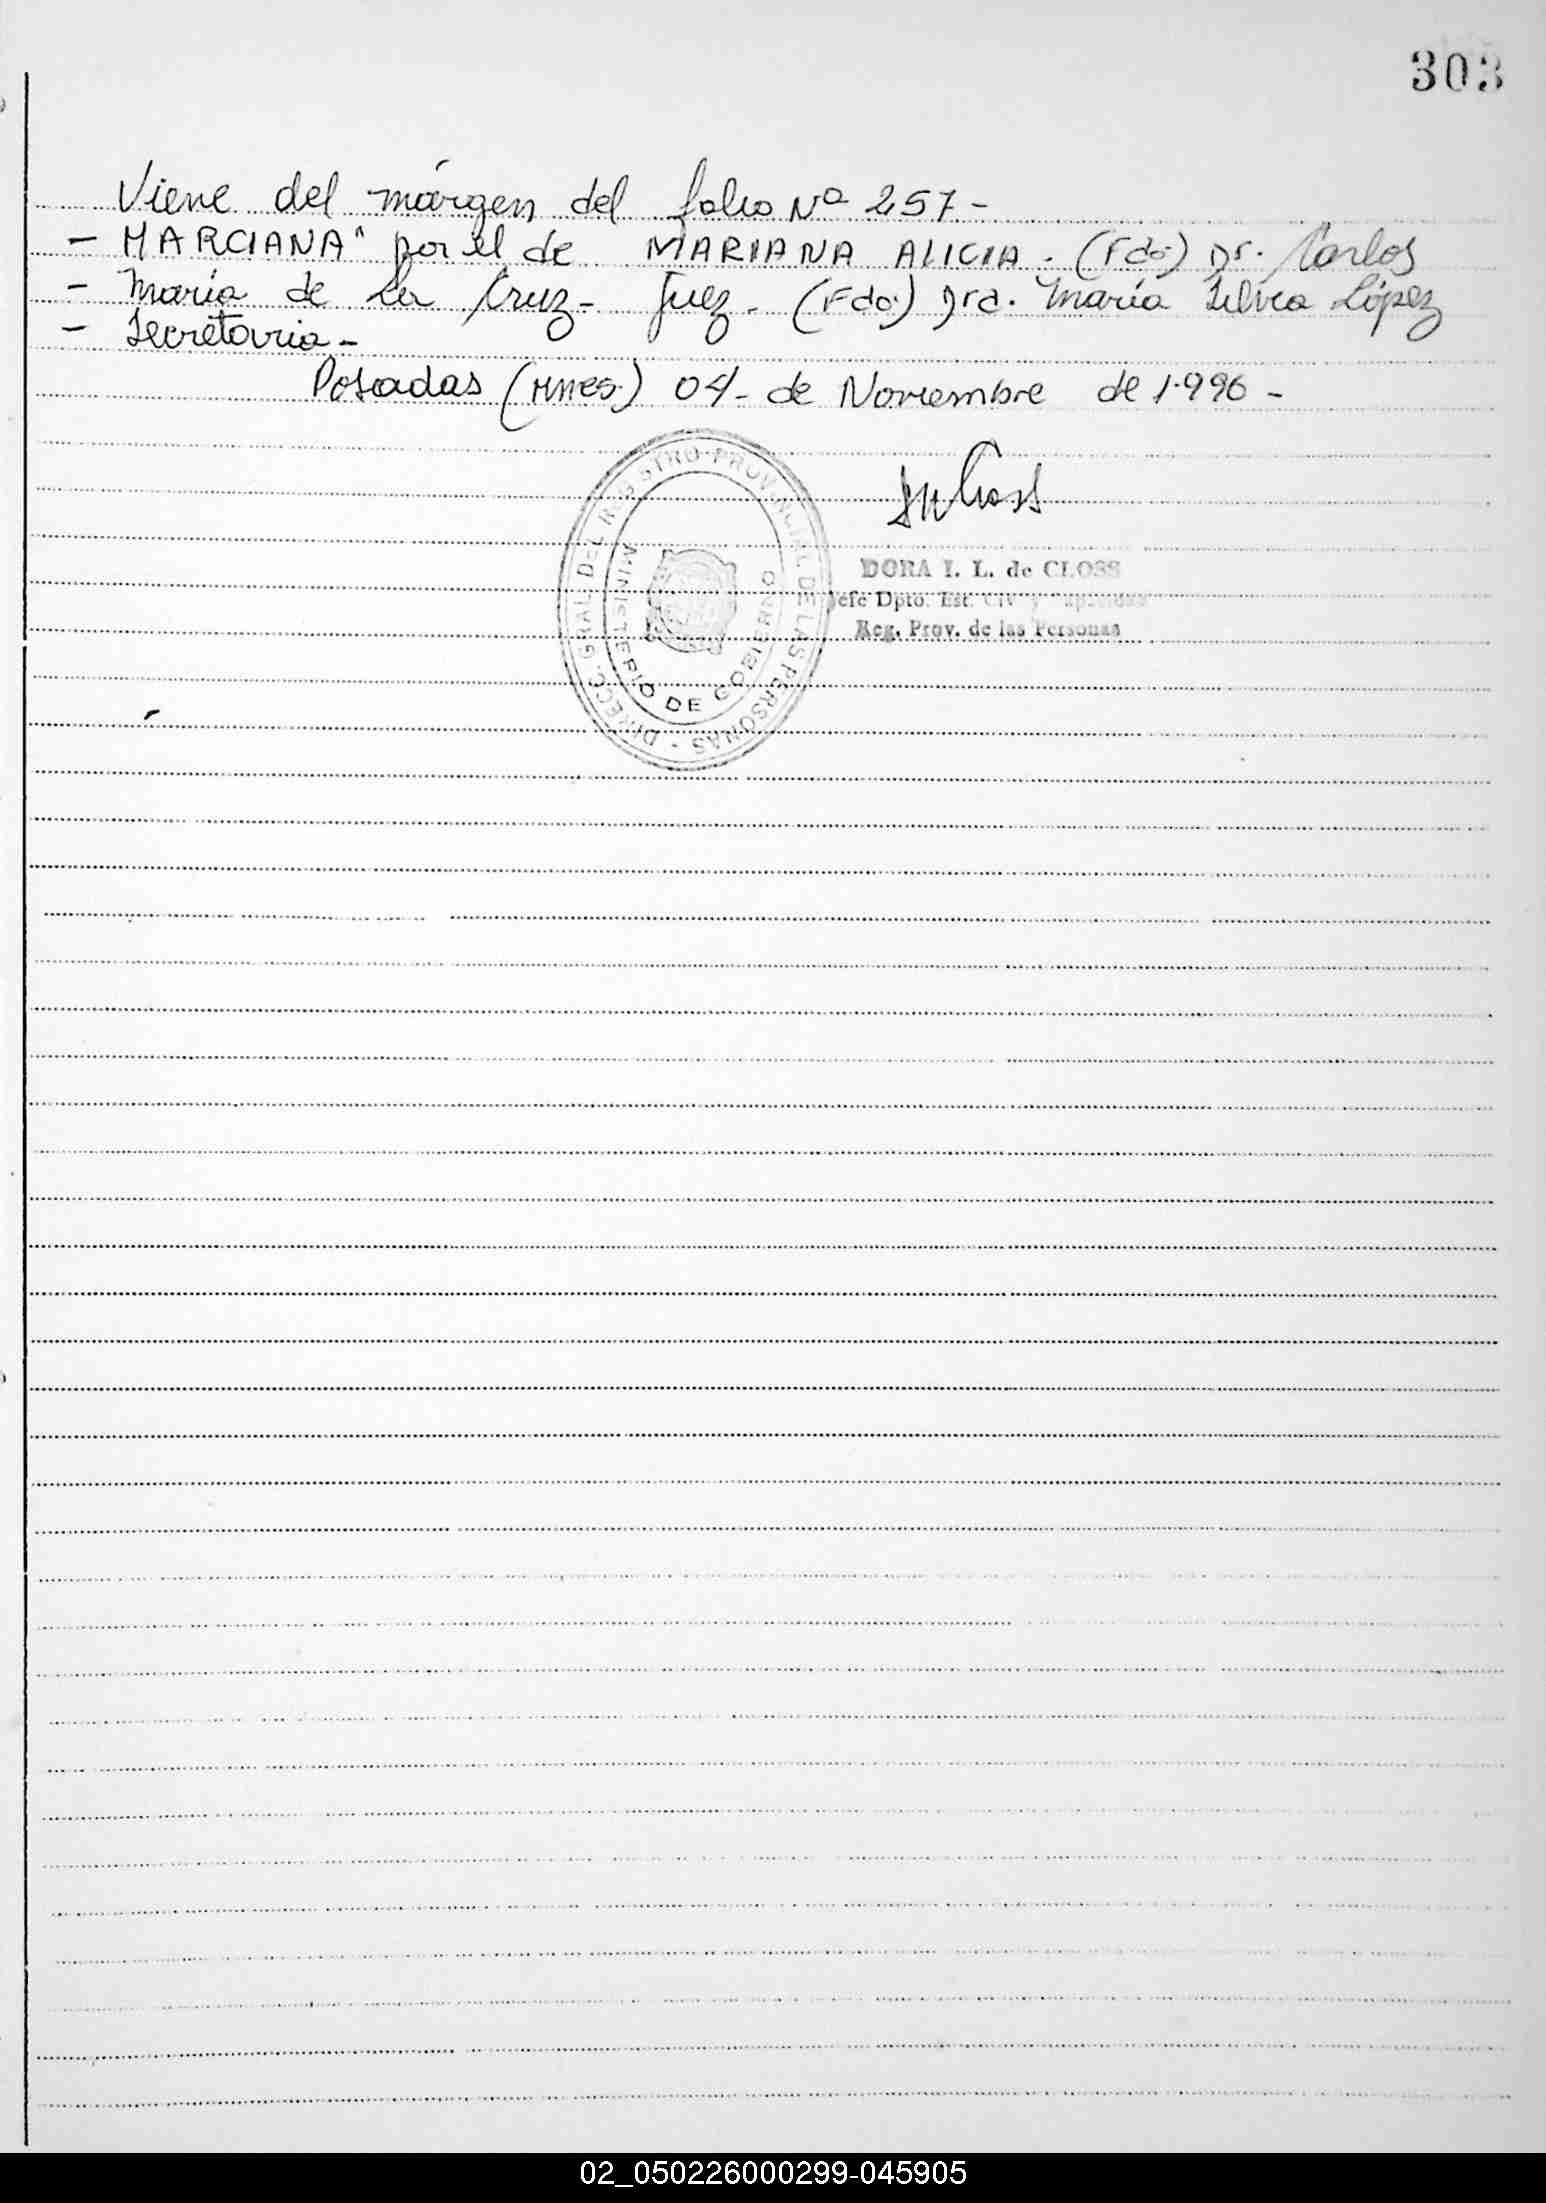 303
Viene del márgen del folio Nº 257-
- MARCIANA" por el de MARIANA ALICIA. (Fdo) Dr. Carlos
- María de la Cruz- Juez. (Fdo) Dra. María Silvia López
- Secretaria-
Posadas (Mnes.) 04- de Noviembre de 1.996-
DIRECC. GRAL. DEL REGISTRO PROVINCIAL DE LAS PERSONAS -
MINISTERIO DE GOBIERNO
DORA I. L. de CLOSS
Jefe Dpto. Est. Civ y
Reg. Prov. de las Personas
02_050226000299-045905